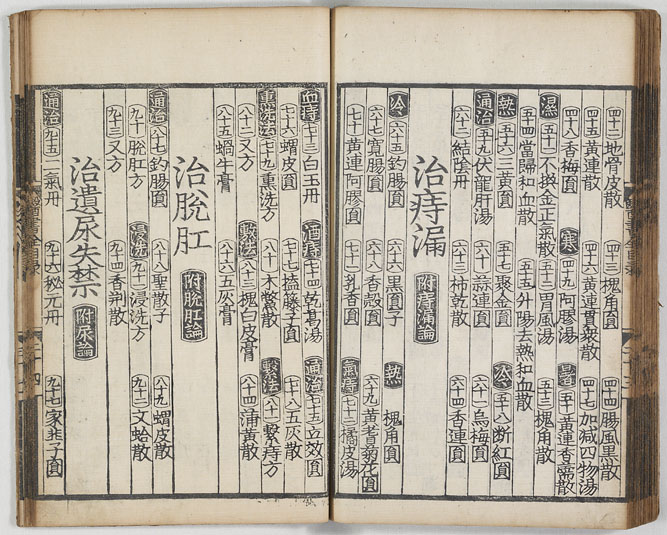 四十二地骨皮散 四十三槐角圓 四十四腸風黒散
四十五黄連散 四十六黄連貫衆散 四十七加減四物湯
四十八香梅圓 寒 四十九阿膠湯 暑 五十黄連香薷散
濕 五十一不換金正氣散 五十二胃風湯 五十三槐角散
五十四當歸和血散 五十五升陽去熱和血散
熱 五十六三黄圓 五十七聚金圓 冷 五十八斷紅圓
通治 五十九伏龍肝湯 六十蒜連圓 六十一烏梅圓
六十二結陰丹 六十三柿乾散 六十四香連圓
治痔漏 附痔漏論
冷 六十五釣腸圓 六十六黒圓子 熱 槐角圓
六十七寛腸圓 六十八香殼圓 六十九黄耆 花圓
七十黄連阿膠圓 七十一乳香圓 氣痔 七十二橘皮湯
血痔 七十三白玉丹 酒痔 七十四乾葛湯 通治 七十五立效圓
七十六蝟皮圓 七十七榼藤子圓 七十八五灰散
熏洗法 七十九熏洗方 八十木鱉散 繫法 八十一繫痔方
八十二又方 敷法 八十三槐白皮膏 八十四蒲黄散
八十五蝸牛膏 八十六五灰膏
治脫肛 附脫肛論
通治 八十七釣腸圓 八十八聖散子 八十九蝟皮散
九十脫肛方 浸洗 九十一浸洗方 九十二文蛤散
九十三又方 九十四香荊散
治遺尿失禁 附尿論
通治 九十五二氣丹 九十六秘元丹 九十七家韭子圓